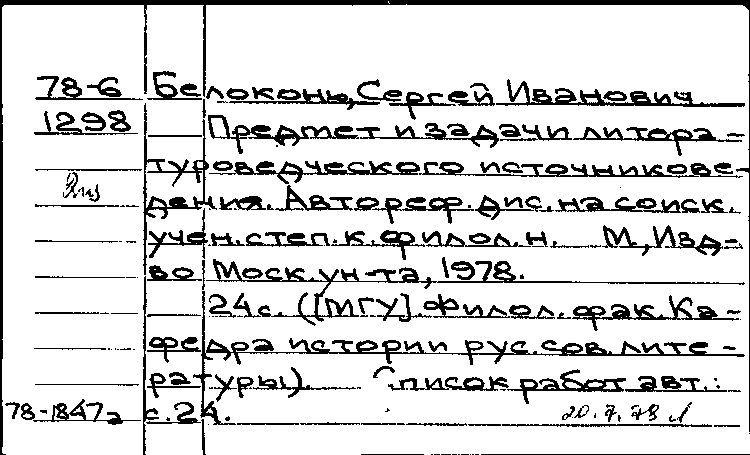 78-6 Белоконь, Сергей Иванович
1298 Предмет и задачи литера-
туроведческого источникове-
дения. Автореф. дис. на соиск.
учен. степ. к. филол. н. М., Изд-
во Моск. ун-та, 1978.
24 с. ([МГУ]. Филол. фак. Ка-
федра истории рус. сов. лите-
ратуры). Список работ авт.:
78-1847а с. 24. 20.7.78